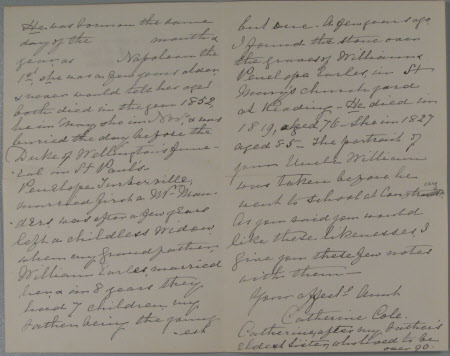 He was born on the same
day of the month &
year as Napoleon the
1st she was a few years older
& never would tell her age
both died in the year 1852,
he in May, she in Novr, & was
buried the day before the
Duke of Wellington's fune-
-ral in St Paul's.
Penelope
married first a Mr Man-
-ders was after a few years
left a childless widow
when my grandfather
William Earles, married
her & in 8 years they
had 7 children, my
father being the young-
-est
but one. A few years ago
I found the stone over
the graves of William &
Penelope Earles, in St
Mary's church yard
at Reading. He died in
1819, aged 76 - She in 1827
aged 85 - The portrait of
your Uncle William
was taken before he
went to school at
As you said you would
like these likenesses, I
give you these few notes
with them -
Your affect Aunt
Catherine Cole.
Catherine, after my father's
eldest sister, who lived to be
over 90.